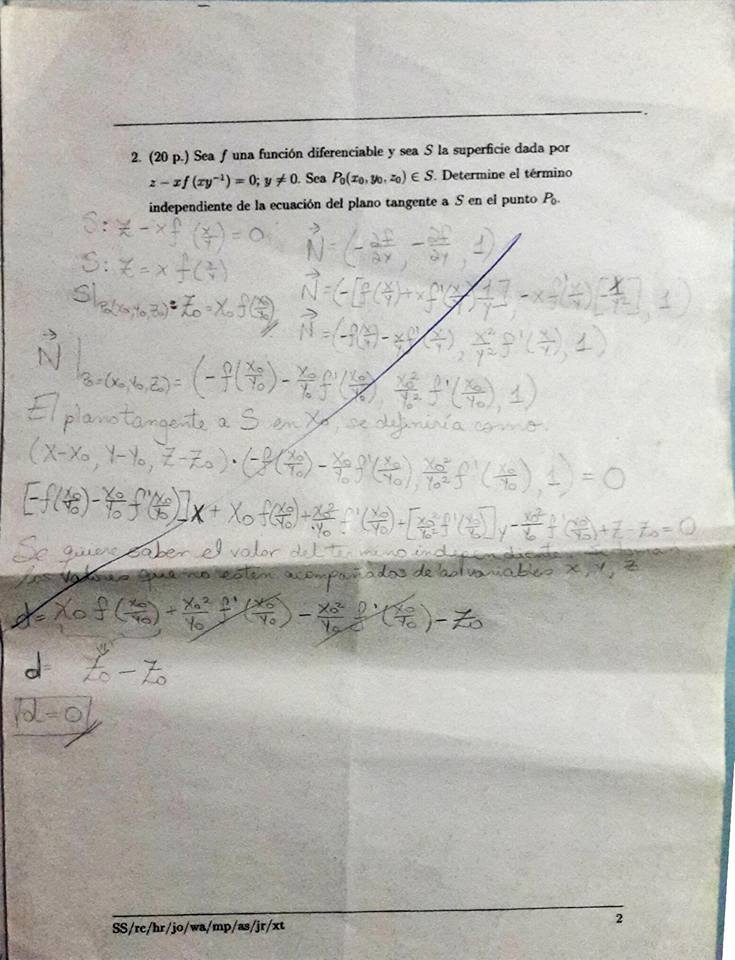 2. (20 p.) Sea f una función diferenciable y sea S la superficie dada por
z − xf (xy⁻¹) = 0; y ≠ 0. Sea P₀(x₀, y₀, z₀) ∈ S. Determine el término
independiente de la ecuación del plano tangente a S en el punto P₀.
S: z − x f (x/y) = 0
N⃗ = (−∂f/∂x, −∂f/∂y, 1)
S: z = x f(x/y)
N⃗ = (−[f(x/y) + x f'(x/y) 1/y], −x f'(x/y)[−x/y²], 1)
S|P₀(x₀,y₀,z₀) = z₀ = x₀ f(x₀/y₀)
N⃗ = (−f(x/y) − x/y f'(x/y), x²/y² f'(x/y), 1)
N⃗|P₀=(x₀,y₀,z₀) = (−f(x₀/y₀) − x₀/y₀ f'(x₀/y₀), x₀²/y₀² f'(x₀/y₀), 1)
El plano tangente a S en X₀, se definiría como:
(x−x₀, y−y₀, z−z₀)·(−f(x₀/y₀) − x₀/y₀ f'(x₀/y₀), x₀²/y₀² f'(x₀/y₀), 1) = 0
[−f(x₀/y₀) − x₀/y₀ f'(x₀/y₀)]x + x₀ f(x₀/y₀) + x₀²/y₀ f'(x₀/y₀) + [x₀²/y₀² f'(x₀/y₀)] y − x₀²/y₀ f'(x₀/y₀) + z − z₀ = 0
Se quiere saber el valor del termino independiente. se toman
los valores que no esten acompañados de las variables x, y, z
d = x₀ f(x₀/y₀) + x₀²/y₀ f'(x₀/y₀) − x₀²/y₀ f'(x₀/y₀) − z₀
d = z₀ − z₀
d = 0
SS/rc/hr/jo/wa/mp/as/jr/xt
2